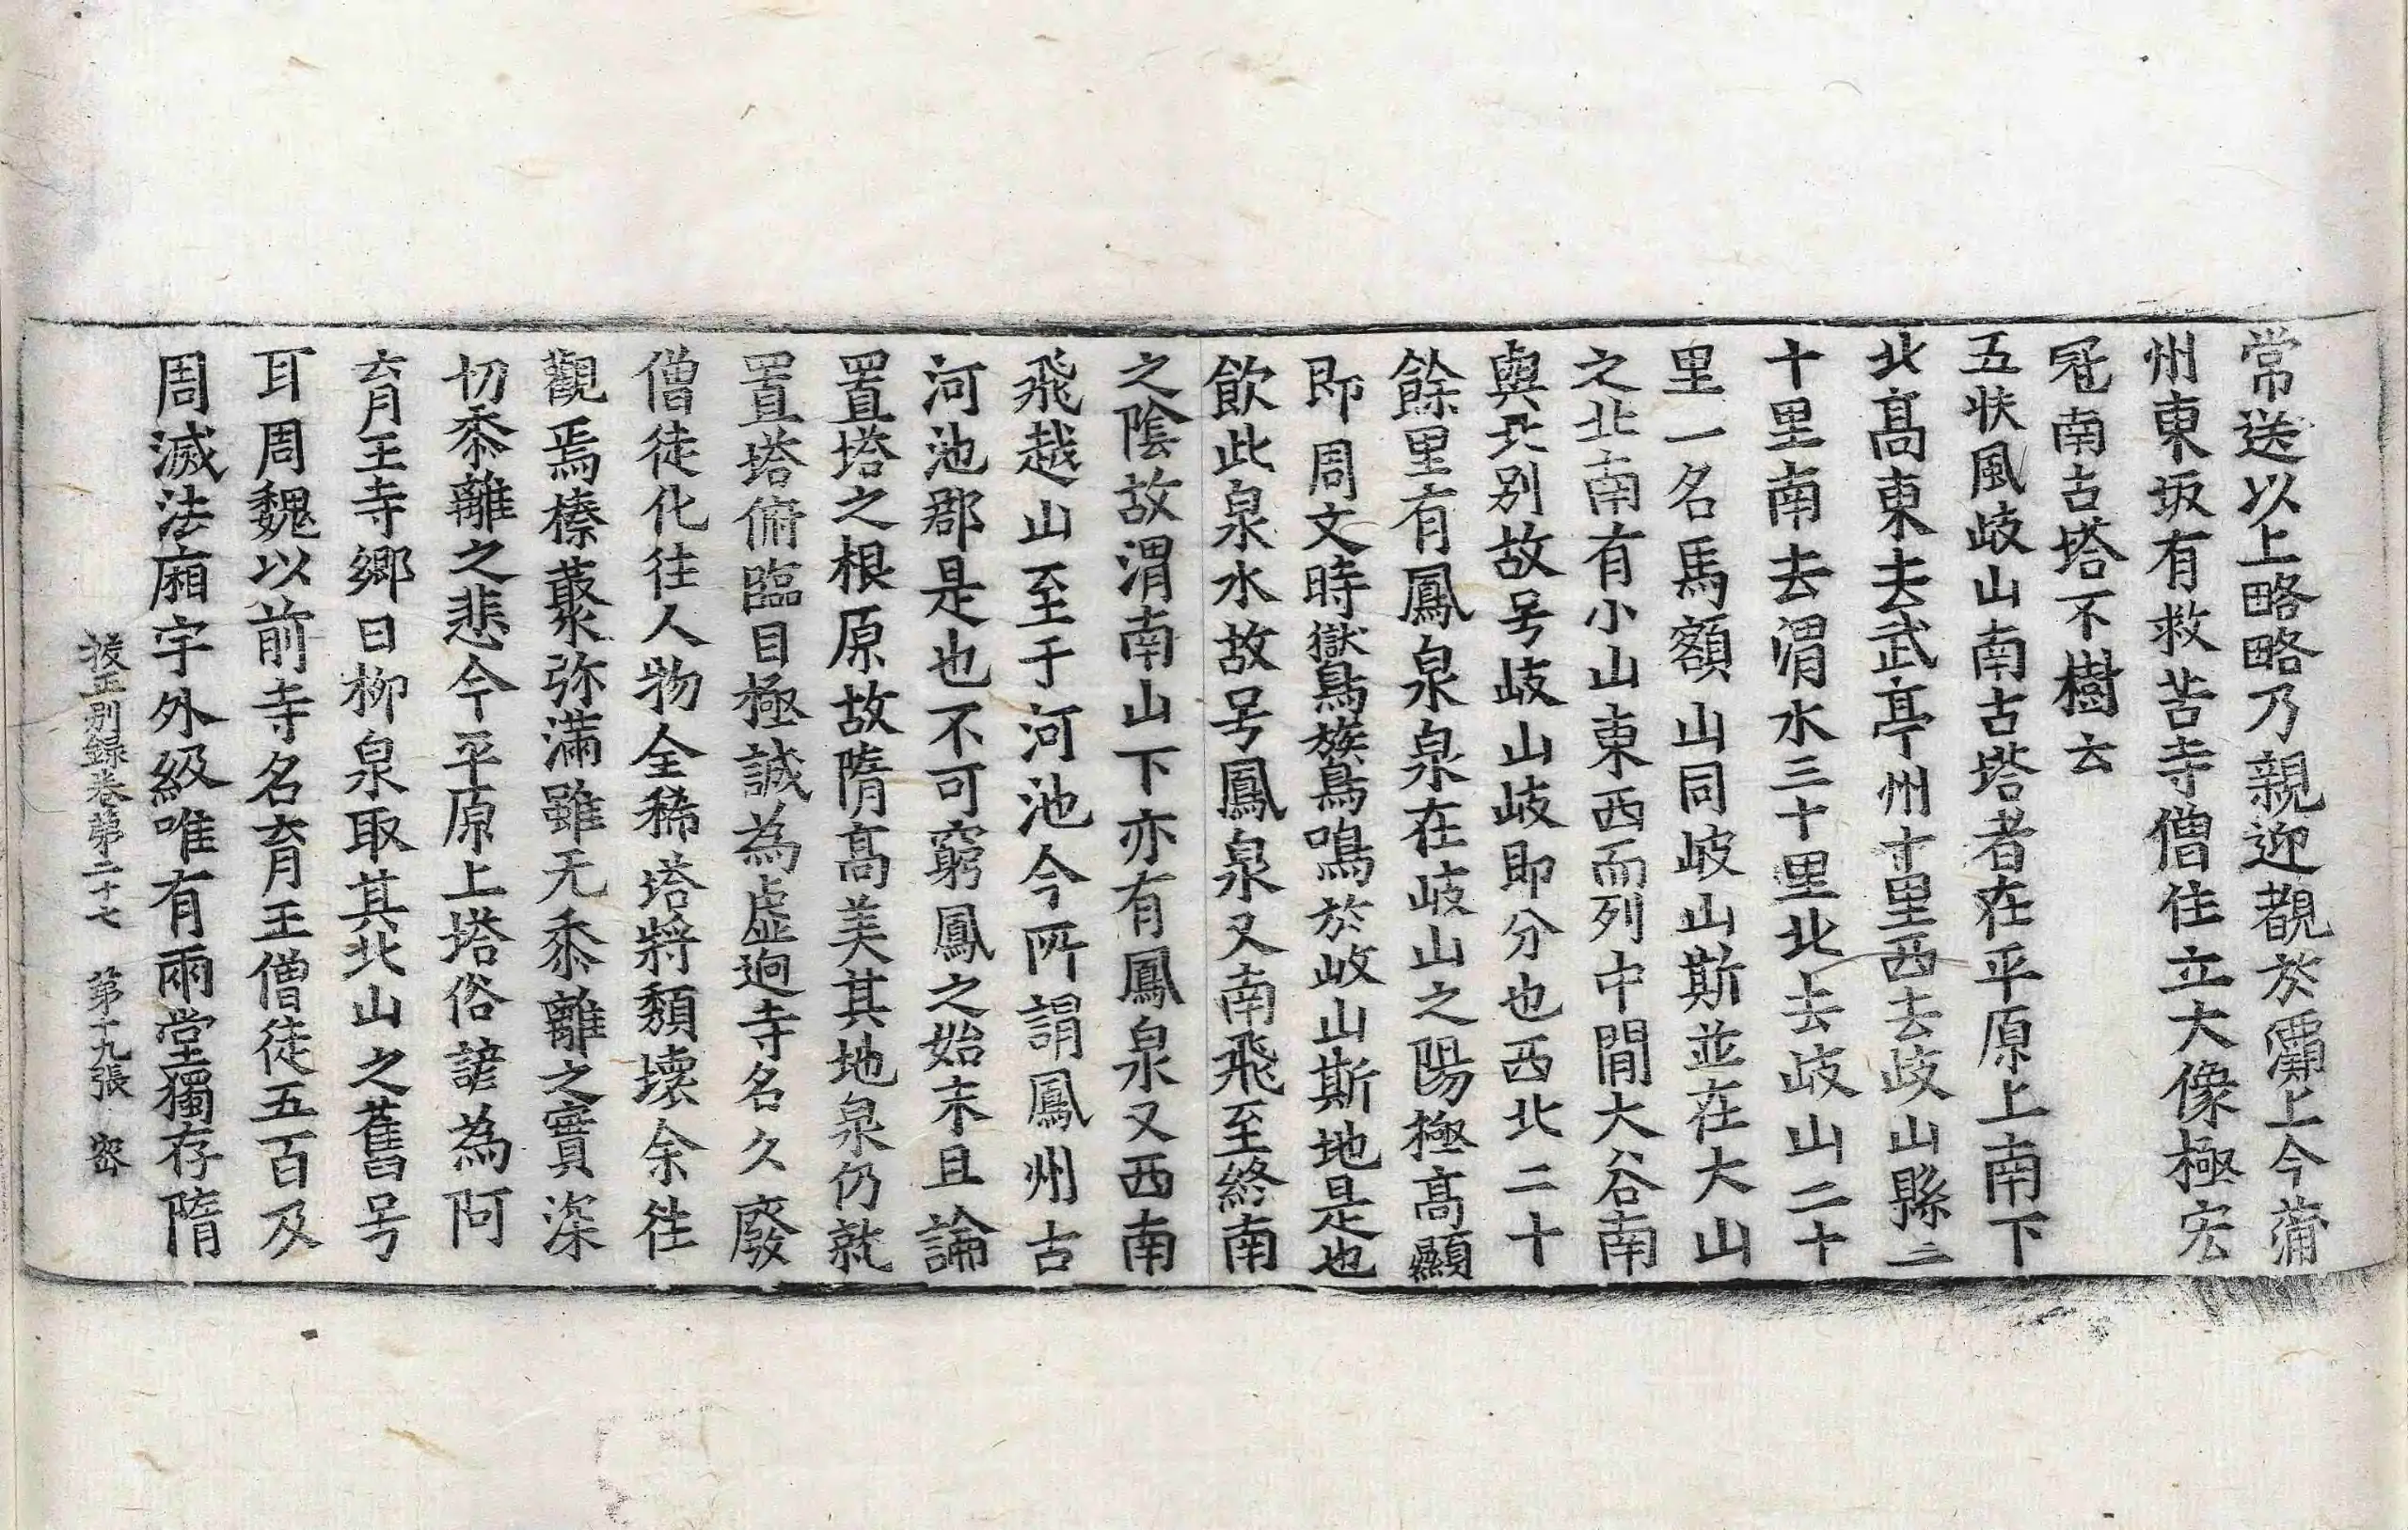 常送以上略略乃親迎覩於灞上今蒲
州東坂有救苦寺僧住立大像極宏
冠南古塔不樹云
五扶風歧山南古塔者在平原上南下
北高東去武亭州十里西去歧山縣二
十里南去渭水三十里北去歧山二十
里一名馬額山同歧山斯並在大山
之北南有小山東西而列中間大谷南
與北別故号歧山歧即分也西北二十
餘里有鳳泉泉在歧山之陽極高顯
即周文時獄鳥族鳥鳴於歧山斯地是也
飲此泉水故号鳳泉又南飛至終南
之陰故渭南山下亦有鳳泉又西南
飛越山至于河池今所謂鳳州古
河池郡是也不可窮鳳之始末且論
置塔之根原故隋高美其地泉仍就
置塔俯臨目極誠為虛迥寺名久廢
僧徒化往人物全稀塔將頹壞余往
觀焉榛藂弥滿雖无黍離之實深
切黍離之悲今平原上塔俗諺為阿
育王寺鄉曰柳泉取其北山之舊号
耳周魏以前寺名育王僧徒五百及
周滅法廂宇外級唯有兩堂獨存隋
挍正別錄卷第二十七 第十九張 密